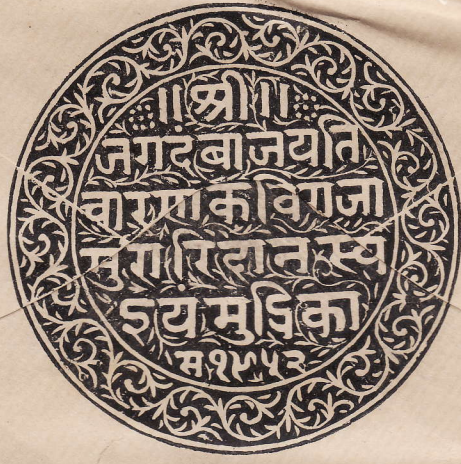 ॥श्री॥
जगदंबाजयति
चारणकविराजा
मुरारिदानस्य
ऽयमुद्रिका
स१९५२